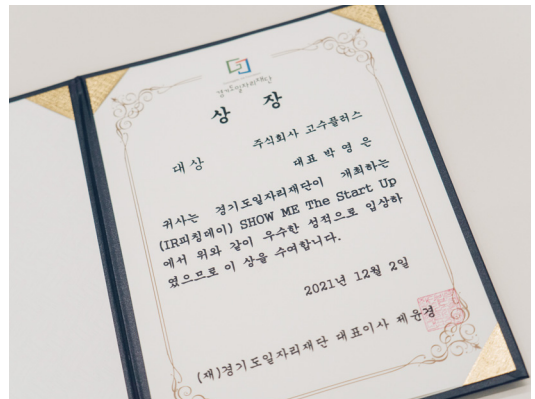 경기도일자리재단
상 장
주식회사 고수플러스
대상
대표 박영은
귀사는 경기도일자리재단이 개최하는
(IR피칭데이) SHOW ME The Start Up
에서 위와 같이 우수한 성적으로 입상하
였으므로 이 상을 수여합니다.
2021년 12월 2일
(재)경기도일자리재단 대표이사 제윤경